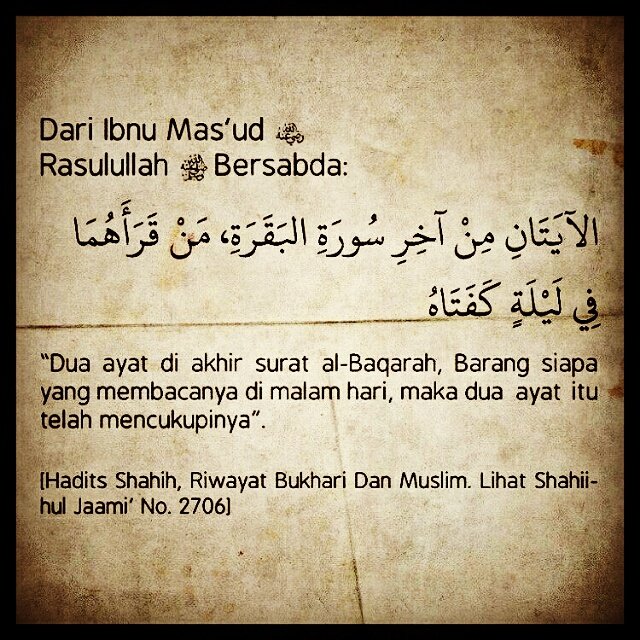 Dari Ibnu Mas'ud
Rasulullah ﷺ Bersabda:
الآيَتَانِ مِنْ آخِرِ سُورَةِ البَقَرَةِ، مَنْ قَرَأَهُمَا
فِي لَيْلَةٍ كَفَتَاهُ
"Dua ayat di akhir surat al-Baqarah, Barang siapa
yang membacanya di malam hari, maka dua ayat itu
telah mencukupinya".
[Hadits Shahih, Riwayat Bukhari Dan Muslim. Lihat Shahii-
hul Jaami' No. 2706]